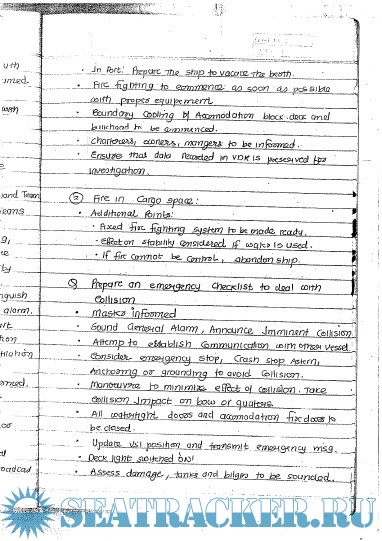 uth
with
and Team
eams
g,
te
by
nguish
alarm.
art
tion
tilation
ormed.
or
oadcast
• In Port: Prepare the ship to vacate the berth.
• Fire fighting to commence as soon as possible
with proper equipement
• Boundary Cooling of Accomodation block, deck and
bulkhead to be commenced.
• Charterers, owners, mangers to be informed.
• Ensure that data recorded in VDR is preserved for
investigation.
② Fire in Cargo space:
• Additional Points:
• Fixed fire fighting system to be made ready.
• effect on stability considered if water is used.
• If fire cannot be control, abandon ship.
Q Prepare an emergency Checklist to deal with
Collision
• Master informed
• Sound General Alarm, Announce Imminent Collision
• Attemp to establish Communication with other vessel
• Consider emergency stop, Crash stop Astern,
Anchoring or grounding to avoid Collision.
• Manoeuvre to minimize effect of collision. Take
Collision impact on bow or quaters
• All watertight doors and accomodation fire doors to
be closed.
• Update vsl position and transmit emergency msg.
• Deck light switched 'ON'
• Assess damage, tanks and bilges to be sounded.
SEATRACKER.RU